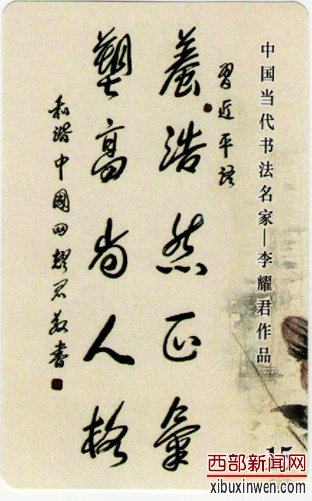 中国当代书法名家—李耀君作品
習近平語
養浩然正氣
塑高尚人格
和諧中國网耀君敬書
西部新闻网
xibuxinwen.com